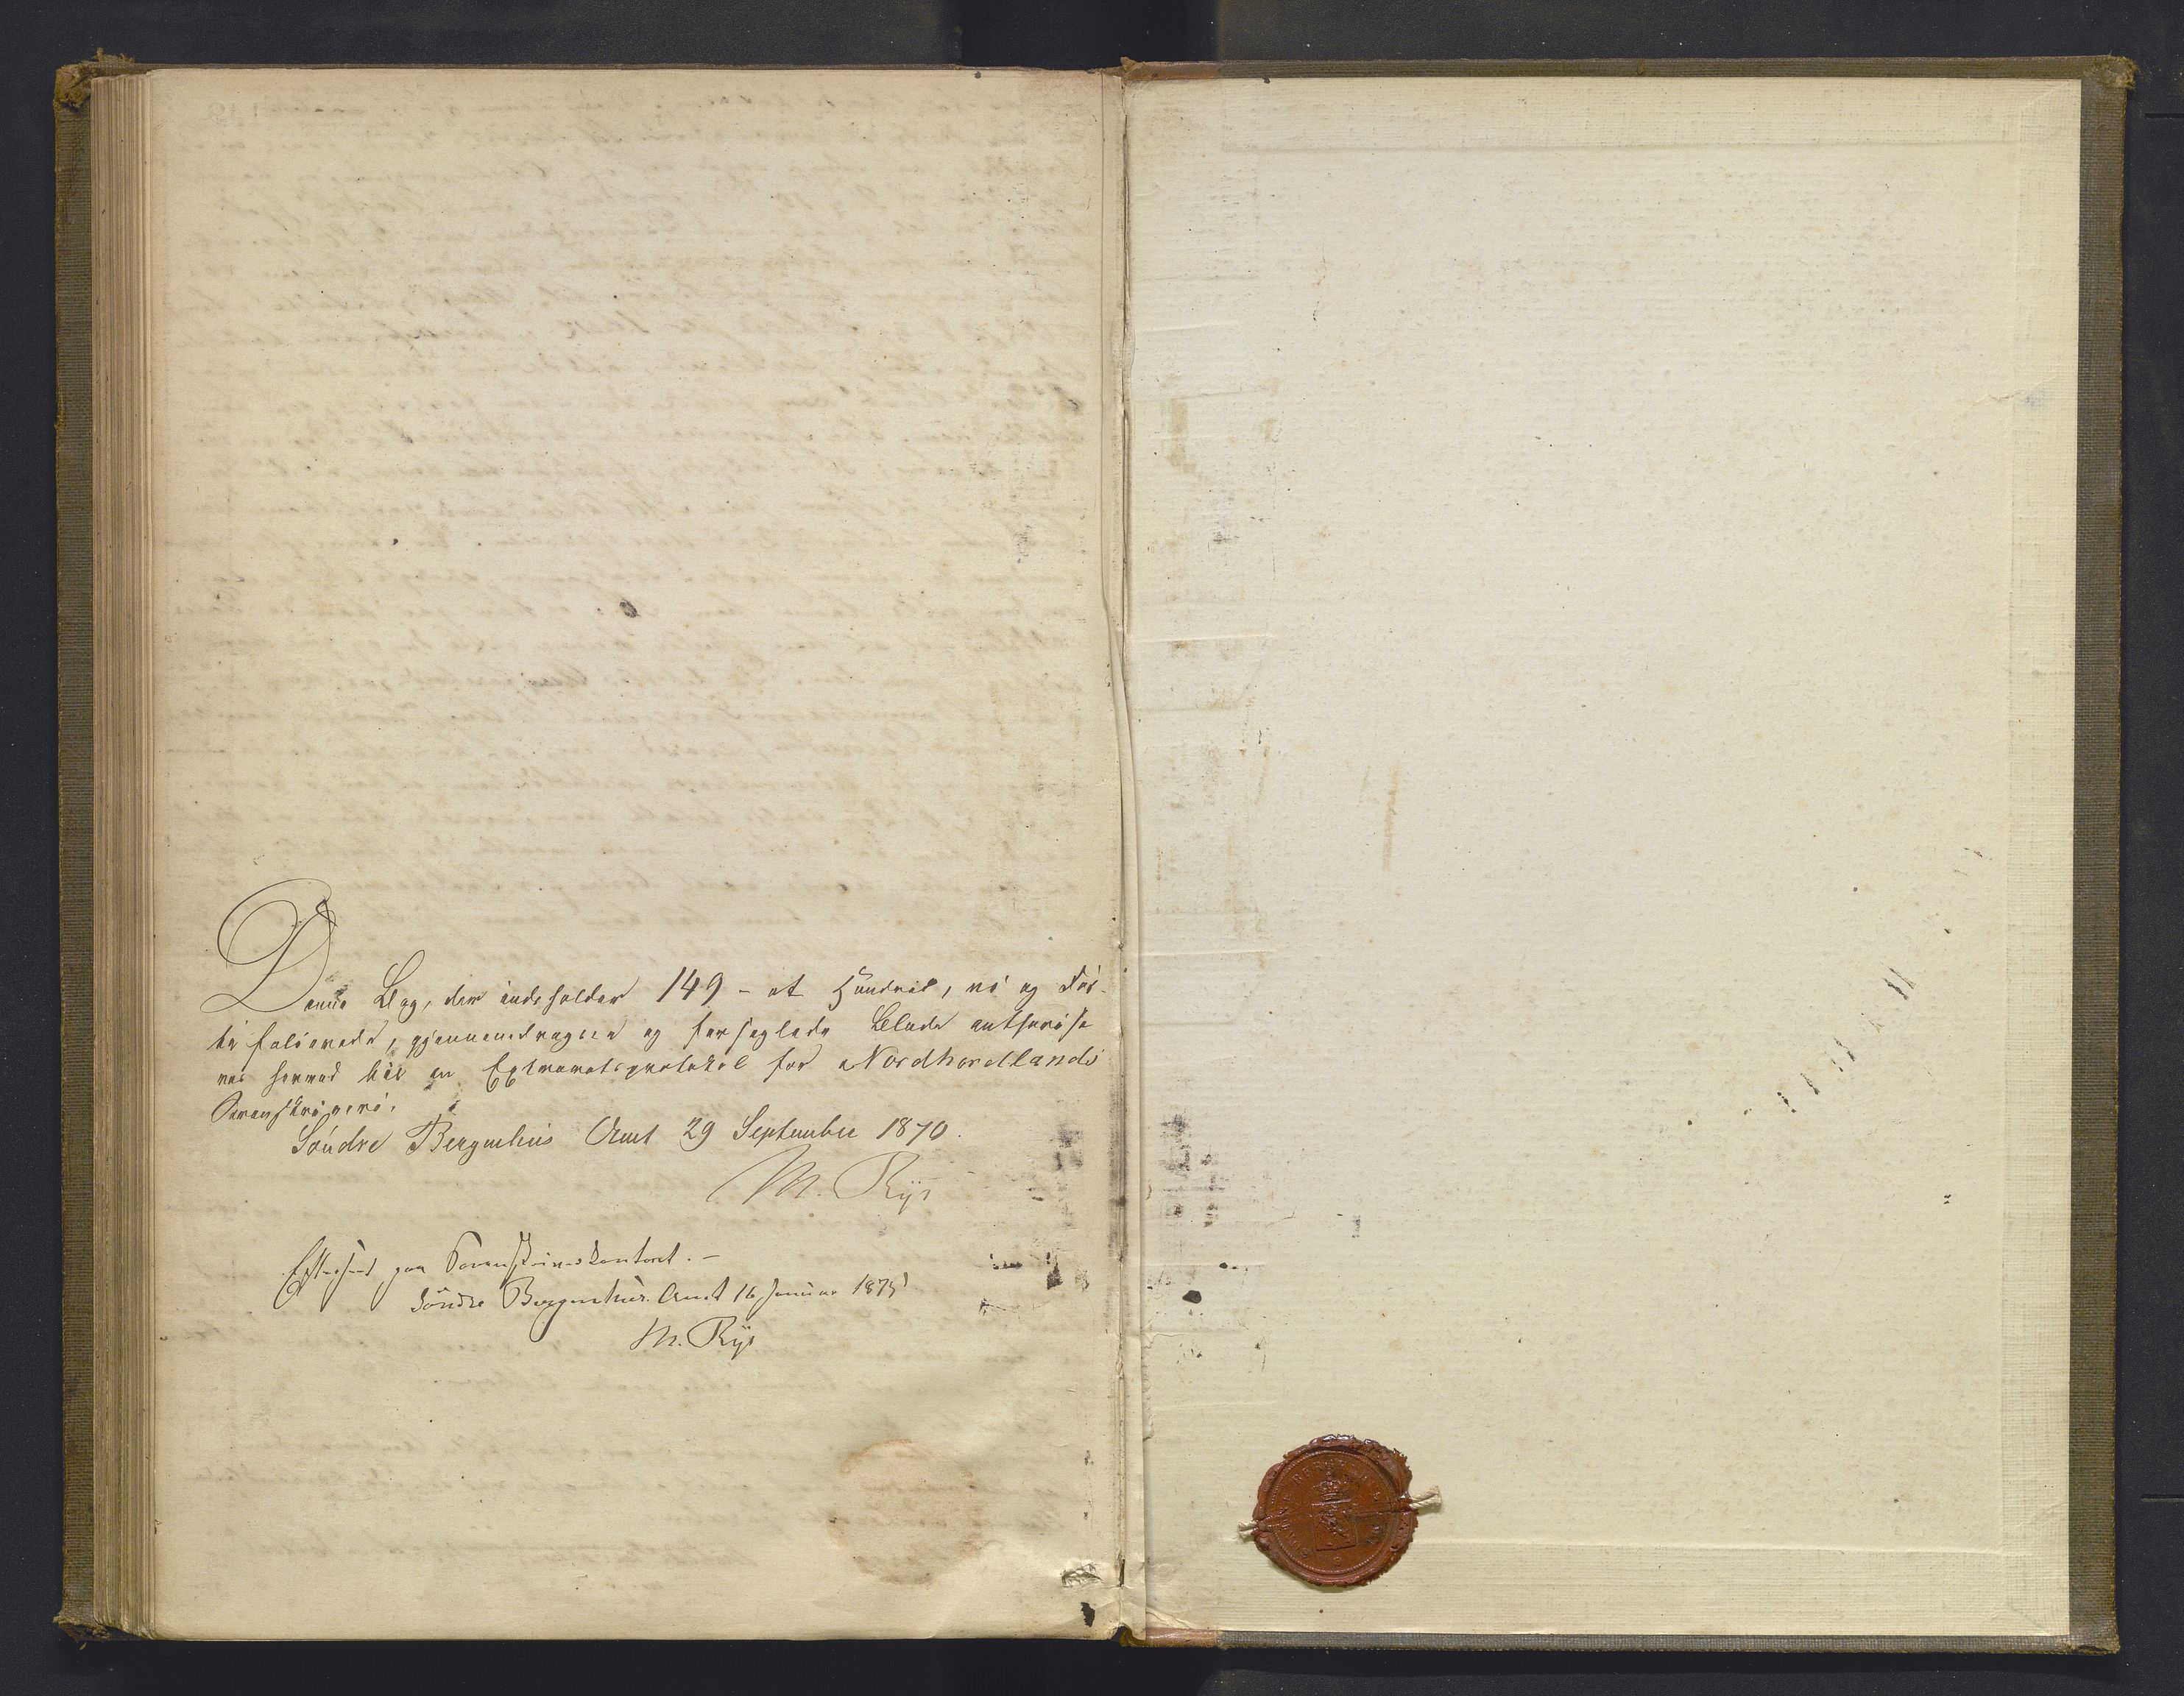 Denne Bog, der indeholder 149 - et Hundred, ni og Før-
ti folierede, gjennemdragne og forseglede Blade authorise-
res herved til en Extraretsprotokol for Nordhordlands
Sorenskriveri.
Søndre Bergenhus Amt 29 September 1870.
M. Rÿe
Efterseet paa Sorenskriverkontoret. -
Søndre Bergenhus Amt 16 Januar 1875
M. Rÿe